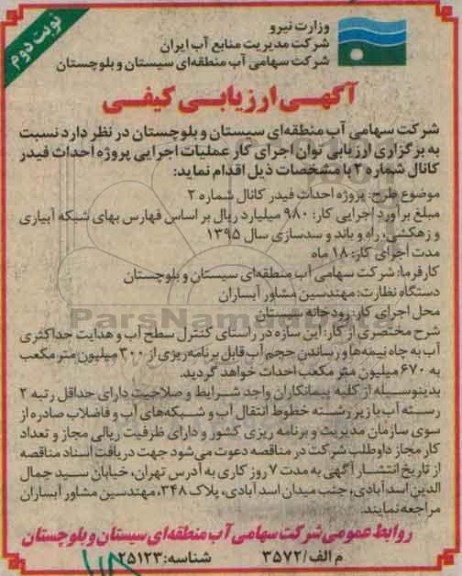 نوبت دوم
وزارت نیرو
شرکت مدیریت منابع آب ایران
شرکت سهامی آب منطقه‌ای سیستان و بلوچستان
آگهی ارزیابی کیفی
شرکت سهامی آب منطقه‌ای سیستان و بلوچستان در نظر دارد نسبت
به برگزاری ارزیابی توان اجرای کار عملیات اجرایی پروژه احداث فیدر
کانال شماره ۲ با مشخصات ذیل اقدام نماید:
موضوع طرح: پروژه احداث فیدر کانال شماره ۲
مبلغ برآورد اجرایی کار: ۹۸۰ میلیارد ریال بر اساس فهارس بهای شبکه آبیاری
و زهکشی، راه و باند و سدسازی سال ۱۳۹۵
مدت اجرای کار: ۱۸ ماه
کارفرما: شرکت سهامی آب منطقه‌ای سیستان و بلوچستان
دستگاه نظارت: مهندسین مشاور آبساران
محل اجرای کار: رودخانه سیستان
شرح مختصری از کار: این سازه در راستای کنترل سطح آب و هدایت حداکثری
آب به چاه نیمه‌ها و رساندن حجم آب قابل برنامه‌ریزی از ۳۰۰ میلیون متر مکعب
به ۶۷۰ میلیون متر مکعب احداث خواهد گردید.
بدینوسیله از کلیه پیمانکاران واجد شرایط و صلاحیت دارای حداقل رتبه ۲
رسته آب با زیر رشته خطوط انتقال آب و شبکه‌های آب و فاضلاب صادره از
سوی سازمان مدیریت و برنامه ریزی کشور و دارای ظرفیت ریالی مجاز و تعداد
کار مجاز داوطلب شرکت در مناقصه دعوت می‌شود جهت دریافت اسناد مناقصه
از تاریخ انتشار آگهی به مدت ۷ روز کاری به آدرس تهران، خیابان سید جمال
الدین اسدآبادی، جنب میدان اسدآبادی، پلاک ۳۴۸، مهندسین مشاور آبساران
مراجعه نمایند.
روابط عمومی شرکت سهامی آب منطقه‌ای سیستان و بلوچستان
م الف/ ۳۵۷۲ شناسه: ۲۵۱۲۳
ParsNamad